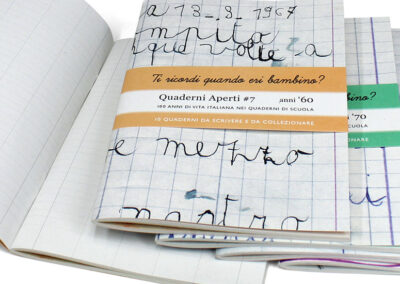 a 13-9-1967
mpito
que volte la
Ti ricordi quando eri bambino?
Quaderni Aperti #7 anni '60
100 ANNI DI VITA ITALIANA NEI QUADERNI DI SCUOLA
10 QUADERNI DA SCRIVERE E DA COLLEZIONARE
e mezzo
nastro
bambino?
'70
SCUOLA
ZIONARE
i